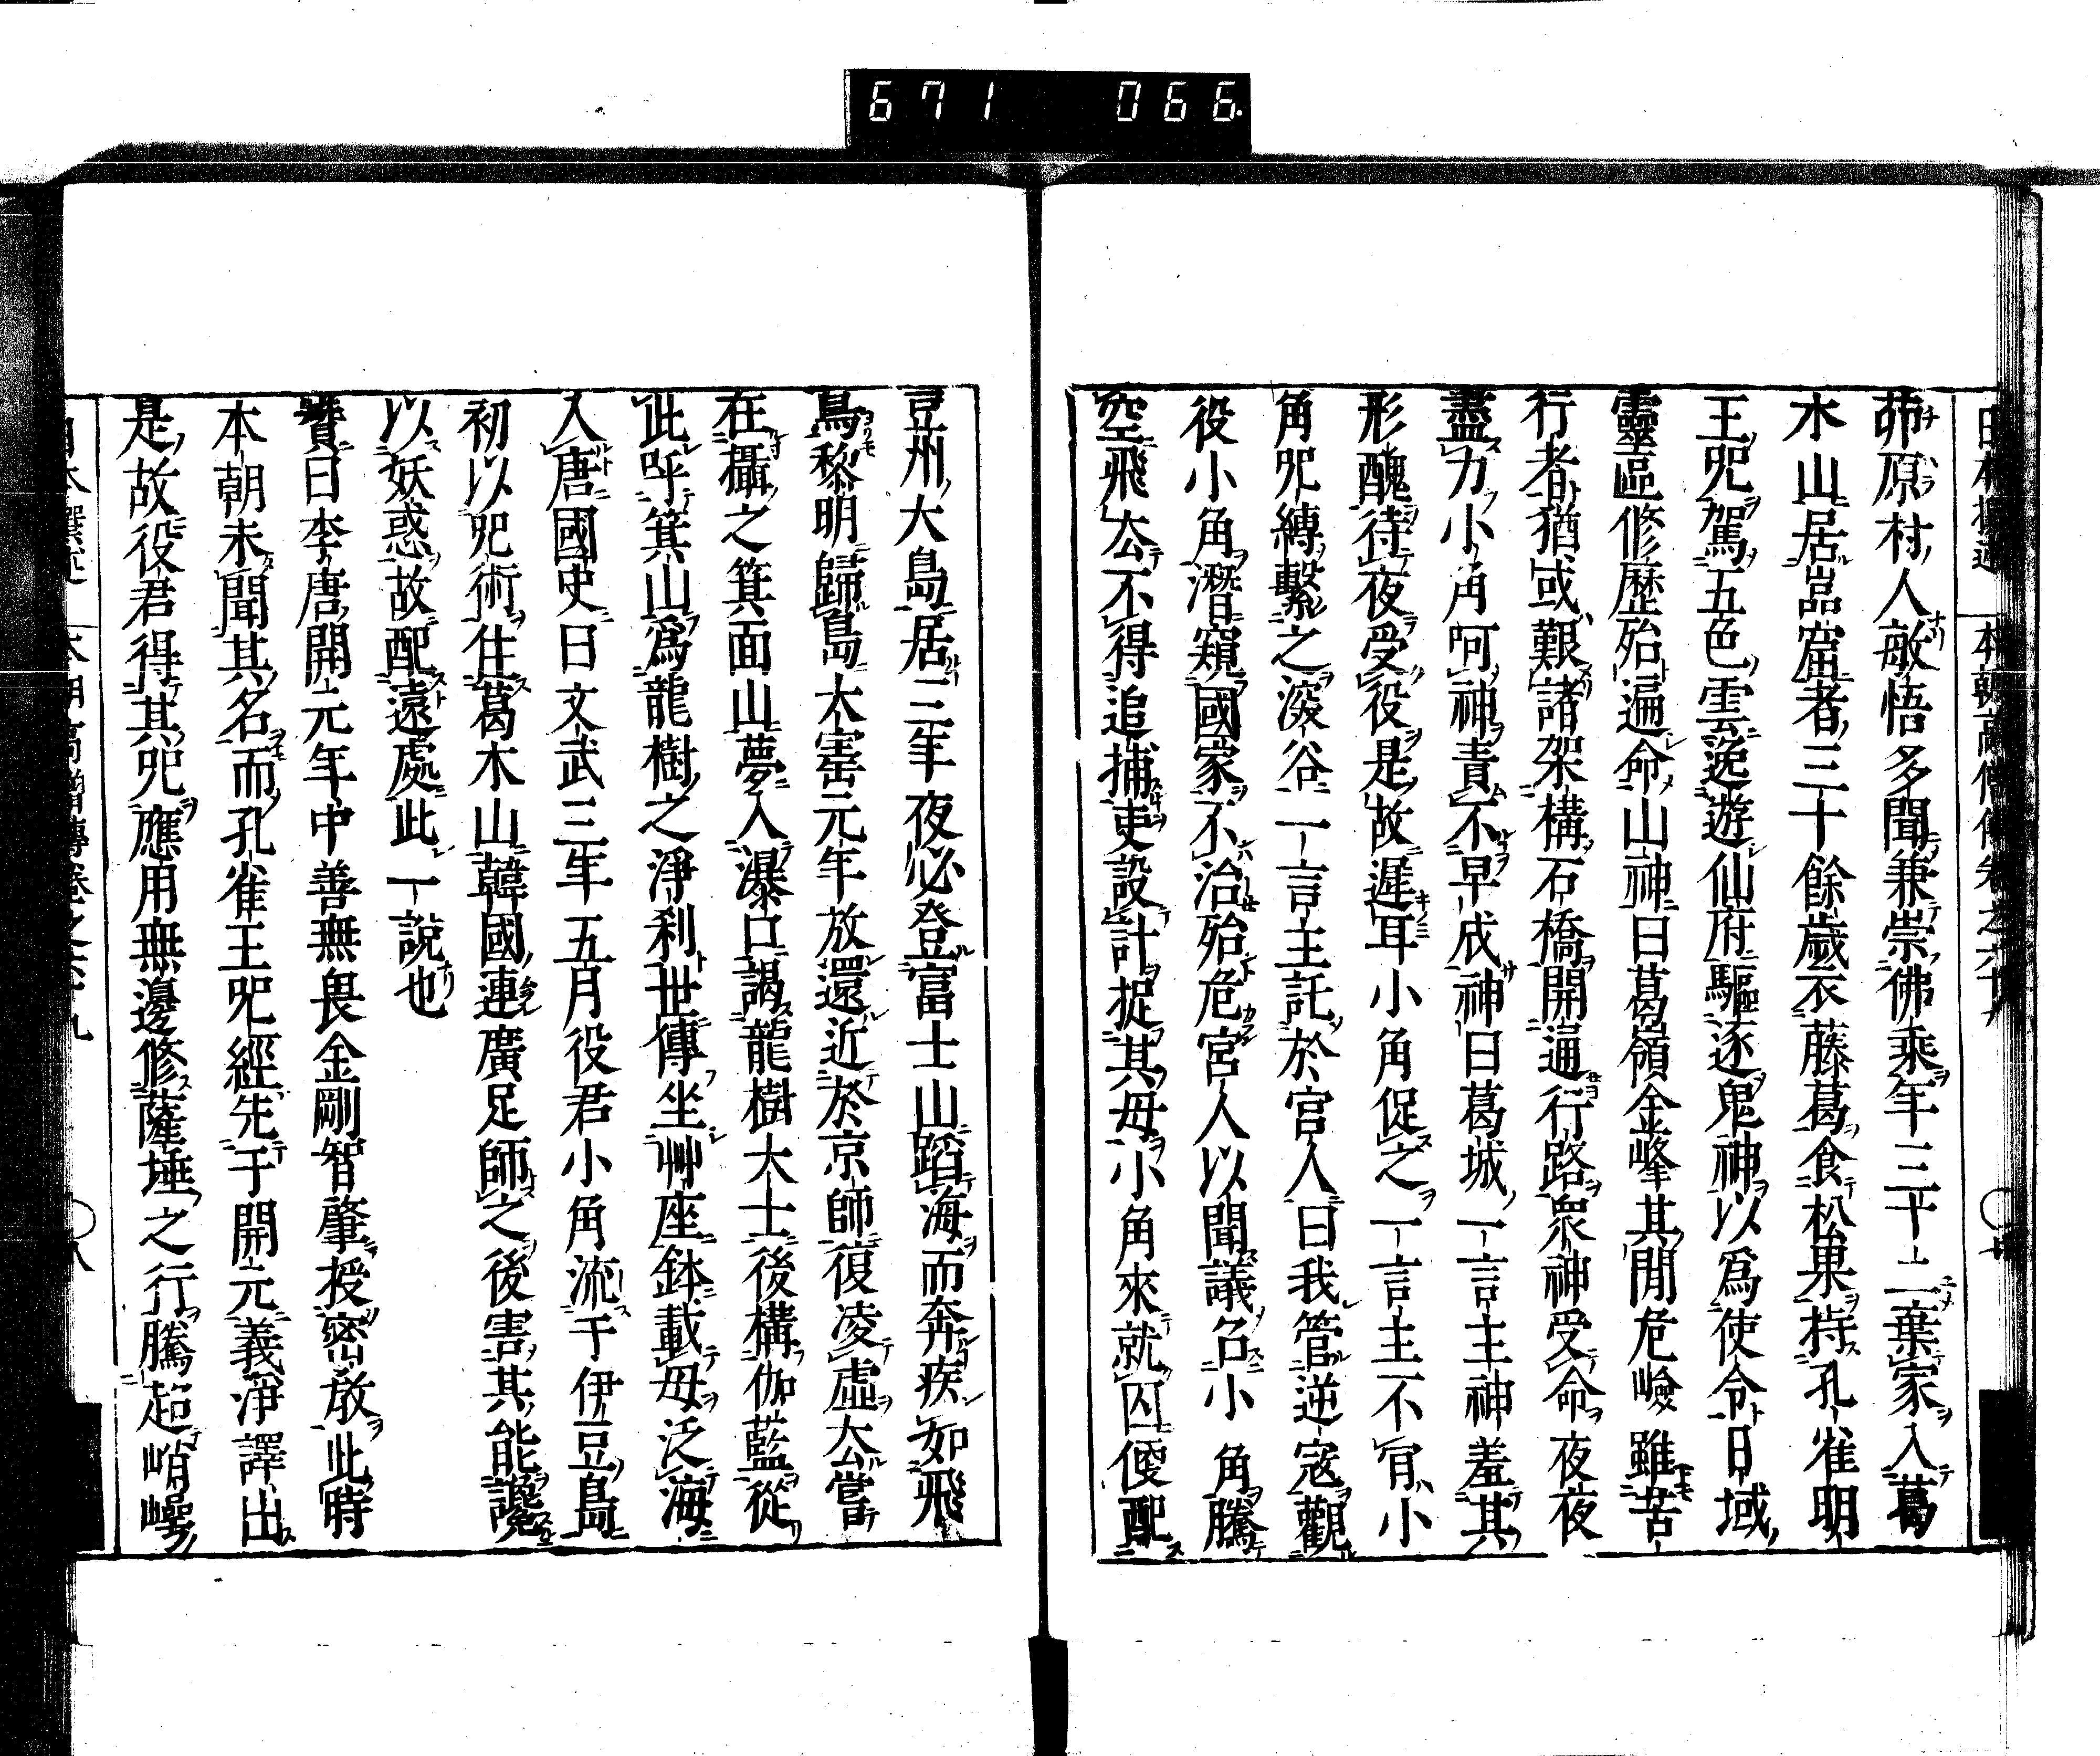 671 066
茆原村人敏悟多聞兼崇佛乘年三十二棄家入葛
木山居嵓窟者三十餘歲衣藤葛食松果持孔雀明
王呪駕五色雲逸遊仙府驅逐鬼神以爲使令日域
靈區修歷殆遍命山神曰葛嶺金峰其閒危嶮雖苦
行者猶或艱諸架構石橋開通行路眾神受命夜夜
盡力小角呵神責不早成神曰葛城一言主神羞其
形醜待夜受役是故遲耳小角促之一言主不肎小
角呪縛繫之深谷一言主託於官人曰我管逆寇觀
役小角潛窺國家不治殆危宮人以聞議名小角騰
空飛去不得追捕吏設計捉其母小角來就囚便配
豆州大島居三年夜必登富士山蹈海而奔疾如飛
鳥黎明歸島大寶元年放還近於京師復凌虛去嘗
在攝之箕面山夢入瀑口謁龍樹大士後構伽藍從
此呼箕山爲龍樹之淨刹世傳坐艸座鉢載母泛海
入唐國史曰文武三年五月役君小角流于伊豆島
初以呪術住葛木山韓國連廣足師之後害其能讒
以妖惑故配遠處此一說也
贊曰李唐開元年中善無畏金剛智肇授密教此時
本朝未聞其名而孔雀王呪經先于開元義淨譯出
是故役君得其呪應用無邊修薩埵之行騰超峭嶫
本朝高僧傳卷之六十九
八